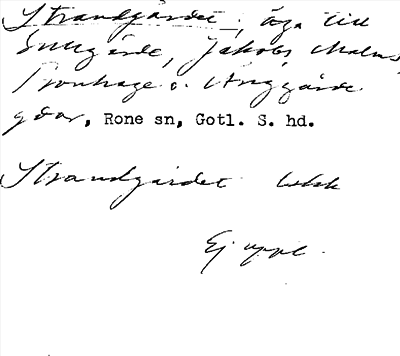 Strandgärdet, äga till
Smågårde, Jakobs, Malms,
Bonhage o. Änggårde
gdar, Rone sn, Gotl. S. hd.
Strandgärdet
Ej uppl.